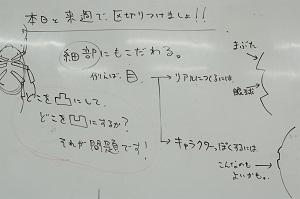 本日と来週で、区切りつけましょ!!
細部にもこだわる。
例えば、目。
→リアルにつくるには
まぶた
眼球
どこを凸にして、
どこを凹にするか?
それが問題です!
→キャラクターっぽくするには
こんなのも
よいかも。